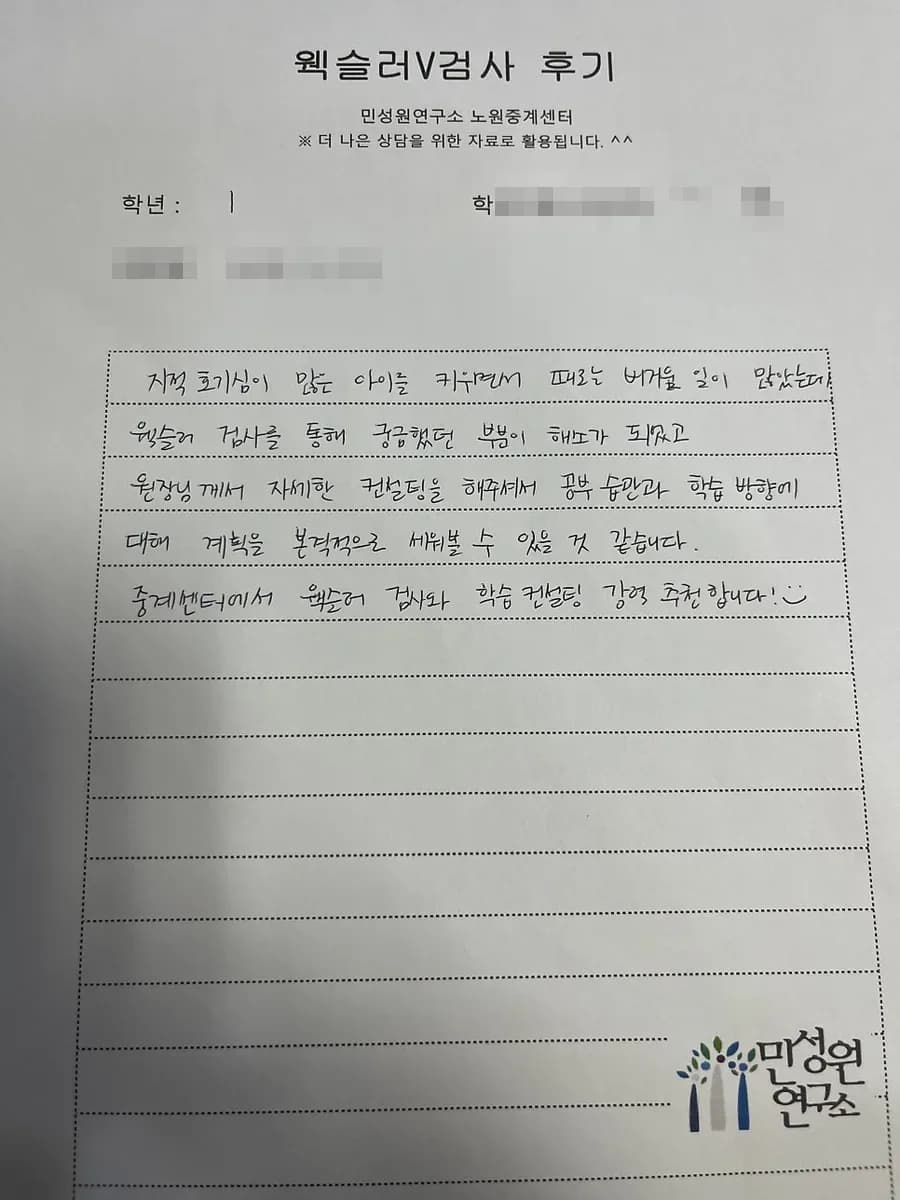 웩슬러V검사 후기
민성원연구소 노원중계센터
※ 더 나은 상담을 위한 자료로 활용됩니다. ^^
학년 : 1
학
지적 호기심이 많은 아이를 키우면서 때로는 버거울 일이 많았는데
웩슬러 검사를 통해 궁금했던 부분이 해소가 되었고
원장님께서 자세한 컨설팅을 해주셔서 공부 습관과 학습 방향에
대해 계획을 본격적으로 세워볼 수 있을 것 같습니다.
중계센터에서 웩슬러 검사와 학습 컨설팅 강력 추천합니다!
민성원
연구소